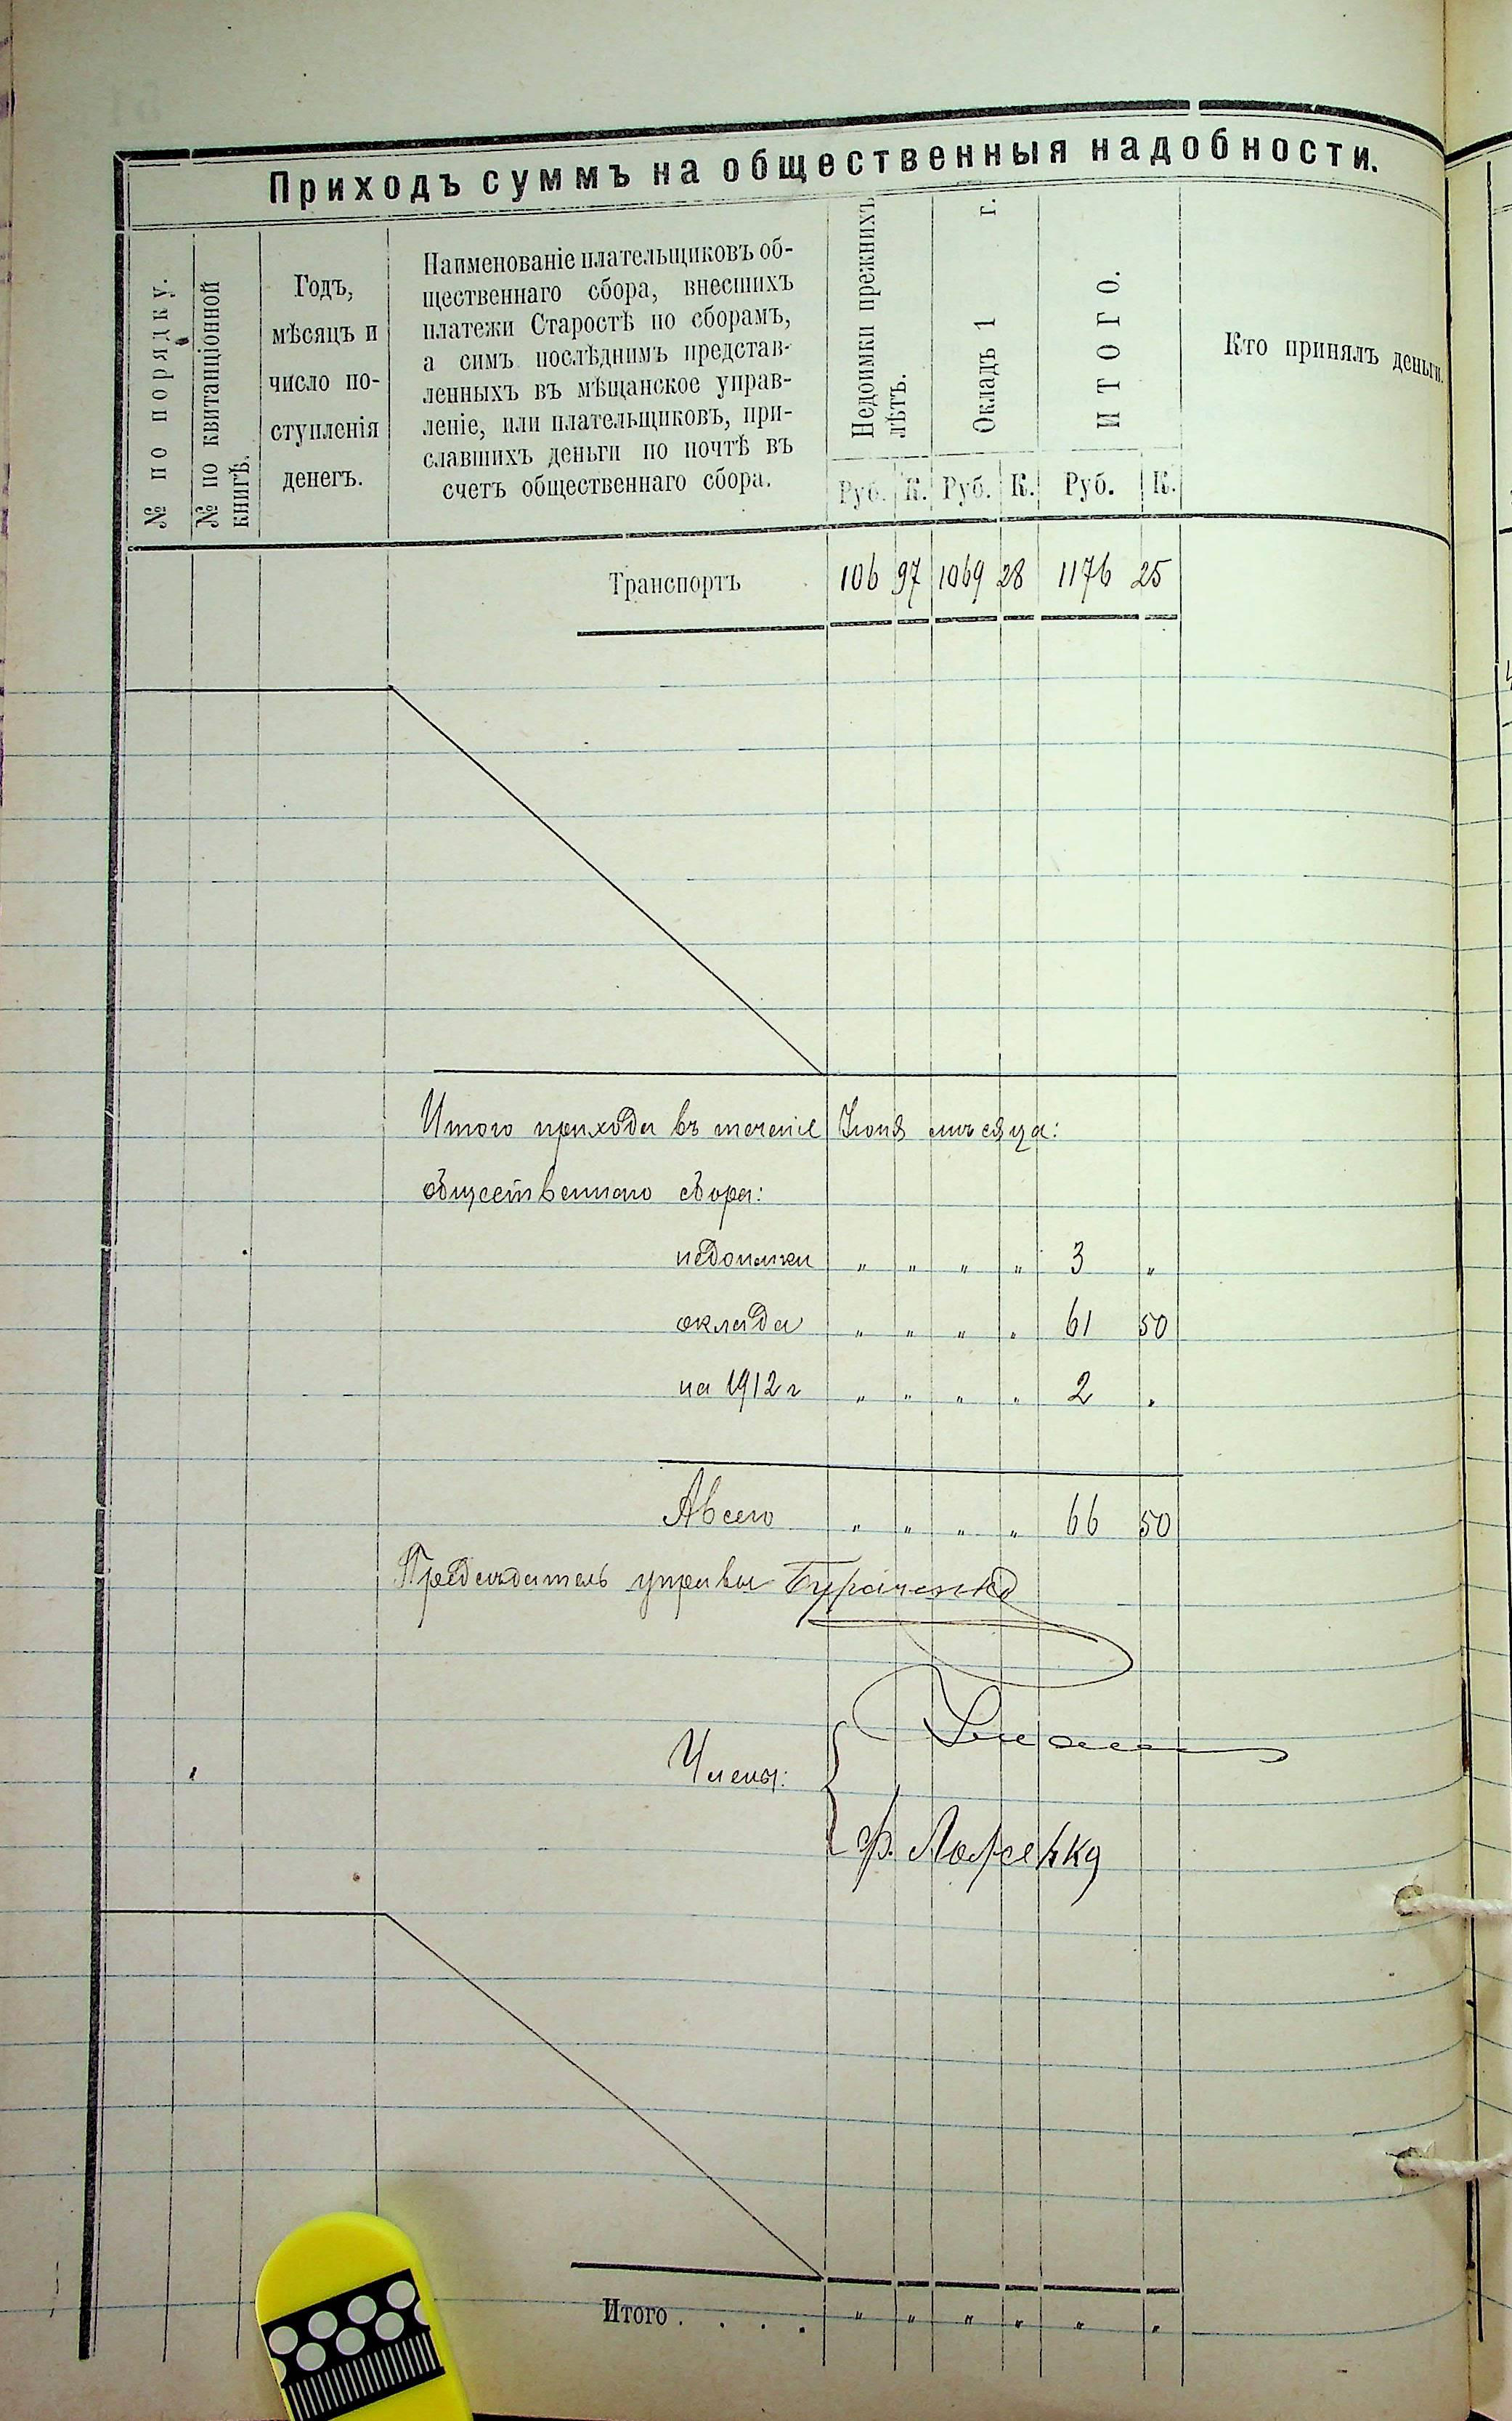 Приходъ суммъ на общественныя надобности.
№ по порядку.
№ по квитанціонной
книгѣ.
Годъ,
мѣсяцъ и
число по-
ступленія
денегъ.
Наименованіе плательщиковъ об-
щественнаго сбора, внесшихъ
платежи Старостѣ по сборамъ,
а симъ послѣднимъ представ-
ленныхъ въ мѣщанское управ-
леніе, или плательщиковъ, при-
славшихъ деньги по почтѣ въ
счетъ общественнаго сбора.
Недоимки прежнихъ
лѣтъ.
Окладъ 1 г.
ИТОГО.
Кто принялъ деньги.
Руб. К. Руб. К. Руб. К.
Транспортъ 106 97 1069 28 1176 25
Итого прихода въ теченіе Іюня мѣсяца:
общественнаго сбора:
недоимки " " " " 3 "
оклада " " " " 61 50
на 1912 г " " " " 2 "
А всего " " " " 66 50
Предсѣдатель управы
Члены:
Ф.
Итого . . . . " " " " " "